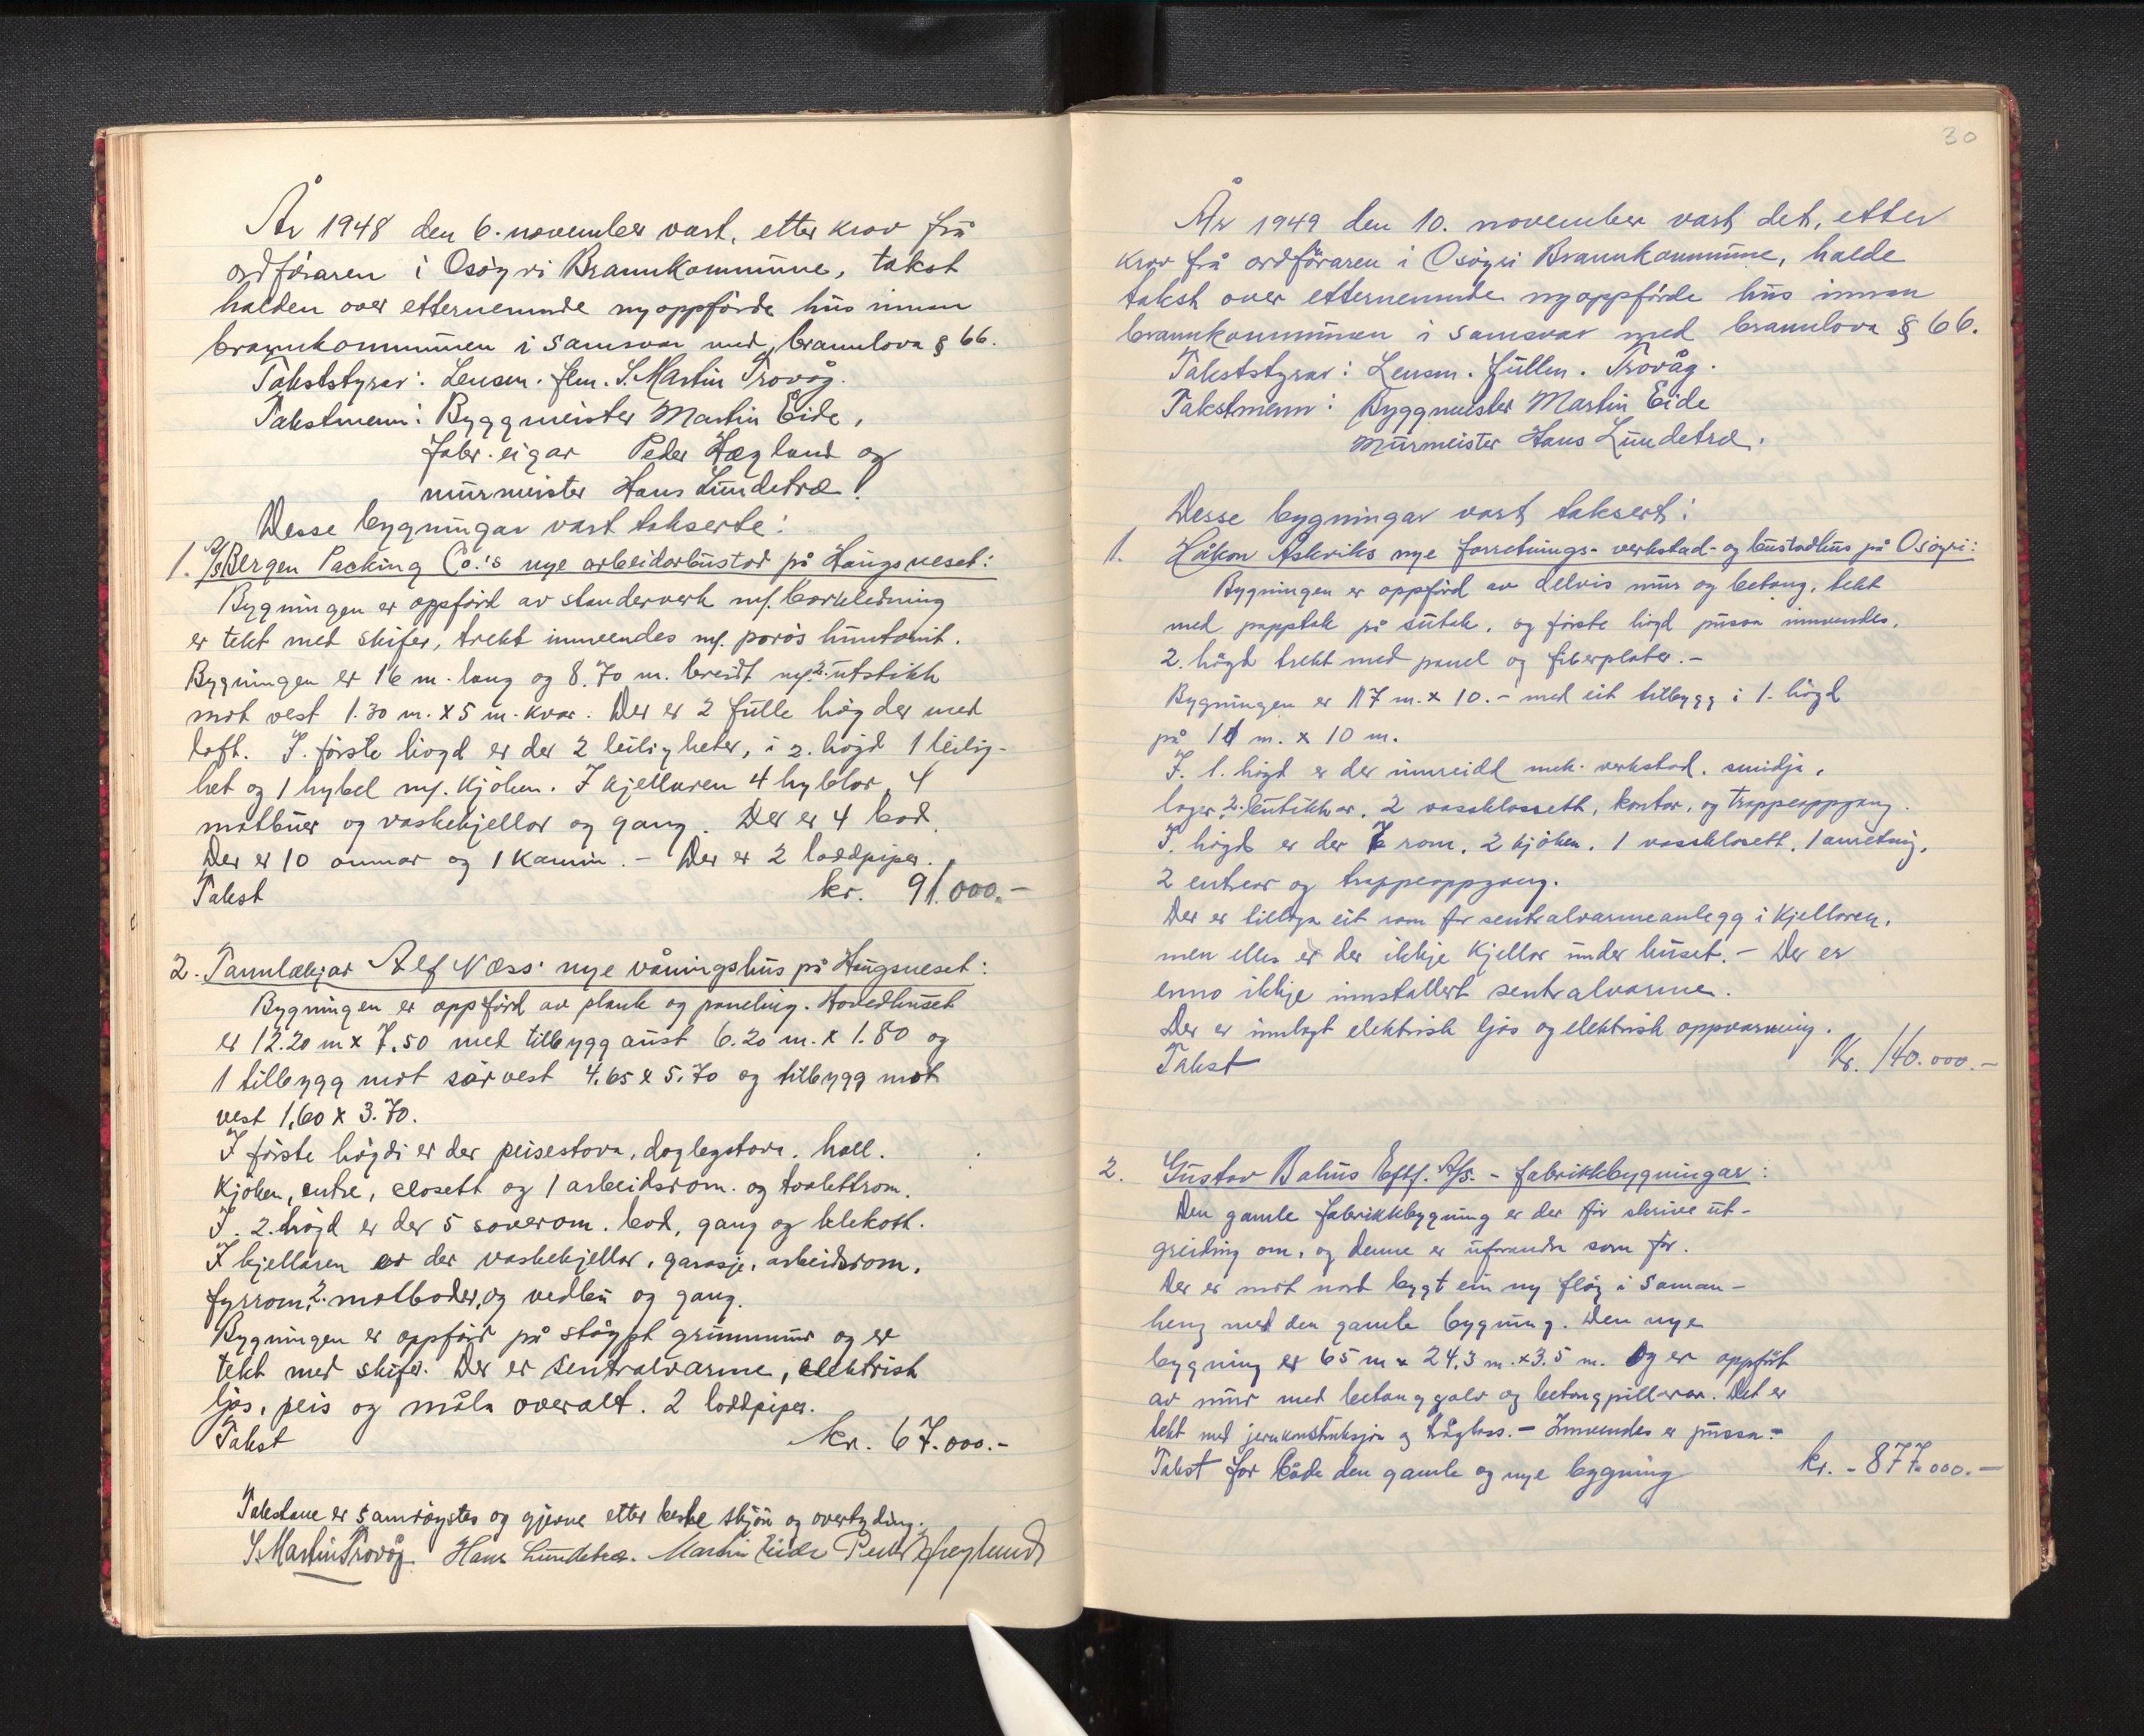 År 1948 den 6. november vart, etter krav frå
ordføraren i Osøyri Brannkommune, takst
halden over etternemnde nyoppførde hus innan
brannkommunen i samsvar med brannlova § 66.
Takststyrar: Lensm. flm. S. Martin Trovåg.
Takstmenn: Byggmeister Martin Eide,
fabr. eigar Peder Hegland og
murmeister Hans Lundetræ.
Desse bygningar vart takserte:
1. A/S Bergen Packing Co.'s nye arbeidarbustad på Haugsneset:
Bygningen er oppførd av standerverk m/. bordkledning
er tekt med skifer, trekt innvendes m/. porøs huntonit.
Bygningen er 16 m. lang og 8.70 m. breidt m/. 2. utstikk
mot vest 1.30 m. x 5 m. kvar. Der er 2 fulle høgder med
loft. I. første høgd er der 2 leiligheter, i 2. høgd 1 leilig-
het og 1 hybel m/. kjøken. I kjellaren 4 hyblar, 4
matbuer og vaskekjellar og gang. Der er 4 bad.
Der er 10 omnar og 1 kamin. – Der er 2 loddpiper.
Takst kr. 91.000.–
2. Tannlækjar Alf Næss' nye våningshus på Haugsneset:
Bygningen er oppførd av plank og paneling. Hovedhuset
er 12.20 m x 7.50 med tilbygg aust 6.20 m. x 1.80 og
1 tilbygg mot sørvest 4.65 x 5.70 og tilbygg mot
vest 1,60 x 3.70.
I første høgdi er der peisestova, daglegstova, hall.
Kjøken, entre, closett og 1 arbeidsrom. og toalettrom.
I. 2. høgd er der 5 soverom. bad, gang og kleskott.
I kjellaren er der vaskekjellar, garasje, arbeidsrom,
fyrrom, 2. matboder, og vedbu og gang.
Bygningen er oppførd på støypt grunnmur og er
tekt med skifer. Der er sentralvarme, elektrisk
ljos, peis og måla overalt. 2 loddpiper.
Takst kr. 67.000.–
Takstane er samrøystes og gjevne etter beste skjøn og overtyding.
S. Martin Trovåg. Hans Lundetræ. Martin Eide Peder Hegland
30
År 1949 den 10. november vart det, etter
krav frå ordføraren i Osøyri Brannkommune, halde
takst over etternemnde nyoppførde hus innan
brannkommunen i samsvar med brannlova § 66.
Takststyrar: Lensm. fullm. Trovåg.
Takstmenn: Byggmeister Martin Eide
Murmeister Hans Lundetræ.
Desse bygningar vart taksert:
1. Håkon Askviks nye forretnings- verkstad- og bustadhus på Osøyri:
Bygningen er oppførd av delvis mur og betong, tekt
med papptak på sutak, og første høgd pussa innvendes,
2. høgd trekt med panel og fiberplater. –
Bygningen er 17 m. x 10. – med eit tilbygg i 1. høgd
på 11 m. x 10 m.
I. 1. høgd er der innreidd mek. verkstad, smidja,
lager, 2. butikkar, 2 vassklosett, kontor, og trappeoppgang.
I. høgd er der 7 rom, 2 kjøken, 1 vassklosett, 1 anretning,
2 entrear og trappeoppgang.
Der er tillaga eit rom for sentralvarmeanlegg i kjellaren,
men elles er der ikkje kjellar under huset. – Der er
enno ikkje innstallert sentralvarme.
Der er innlagt elektrisk ljos og elektrisk oppvarming.
Takst Kr. 140.000.–
2. Gustav Bahus Eftf. A/S. – fabrikkbygningar:
Den gamle fabrikkbygning er der før skrive ut-
greiding om, og denne er uforandra som før.
Der er mot nord bygt ein ny fløy i saman-
heng med den gamle bygning. Den nye
bygning er 65 m x 24,3 m. x 3.5 m. Og er oppført
av mur med betonggolv og betongpillarar. Det er
tekt med jernkonstruksjon og trådglass. – Innvendes er pussa. –
Takst for både den gamle og nye bygning kr. – 877.000.–